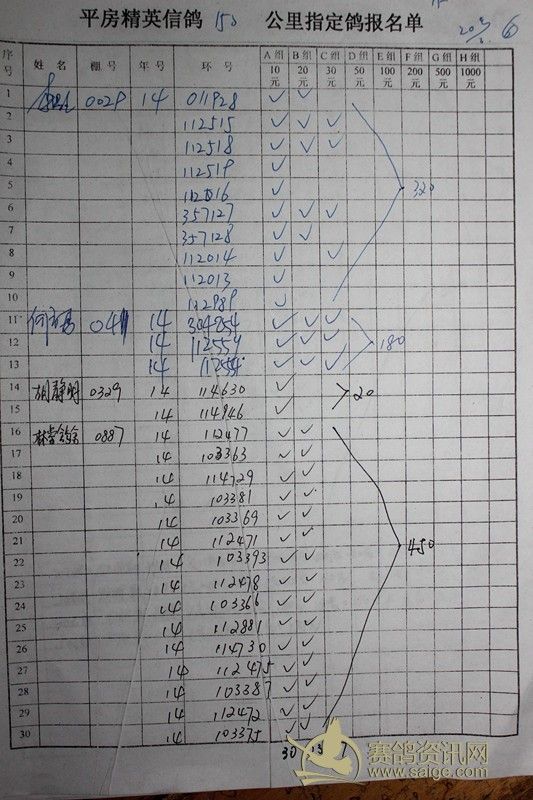 平房精英信鸽 150 公里指定鸽报名单
序号 姓名 棚号 年号 环号 A组 10元 B组 20元 C组 30元 D组 50元 E组 100元 F组 200元 G组 500元 H组 1000元
1 0029 14 011928 ✓ ✓
2 112515 ✓ ✓ ✓
3 112518 ✓ ✓ ✓
4 112519 ✓
5 112516 ✓ 320
6 357127 ✓ ✓ ✓
7 357128 ✓ ✓
8 112014 ✓ ✓
9 112013 ✓
10 112989 ✓
11 14 304254 ✓ ✓ ✓
12 14 112559 ✓ ✓ ✓ 180
13 14 ✓ ✓ ✓
14 胡静明 0329 14 114630 ✓ 20
15 14 114946 ✓
16 0887 14 112477 ✓ ✓
17 14 103363 ✓ ✓
18 14 114729 ✓ ✓
19 14 103381 ✓ ✓
20 14 103369 ✓ ✓
21 14 112471 ✓ ✓ 450
22 14 103393 ✓ ✓
23 14 112478 ✓ ✓
24 14 103366 ✓ ✓
25 14 112881 ✓ ✓
26 14 114730 ✓ ✓
27 14 112475 ✓ ✓
28 14 103387 ✓ ✓
29 14 112472 ✓ ✓
30 14 103375 ✓ ✓
30 7
赛鸽资讯网
www.saige.com